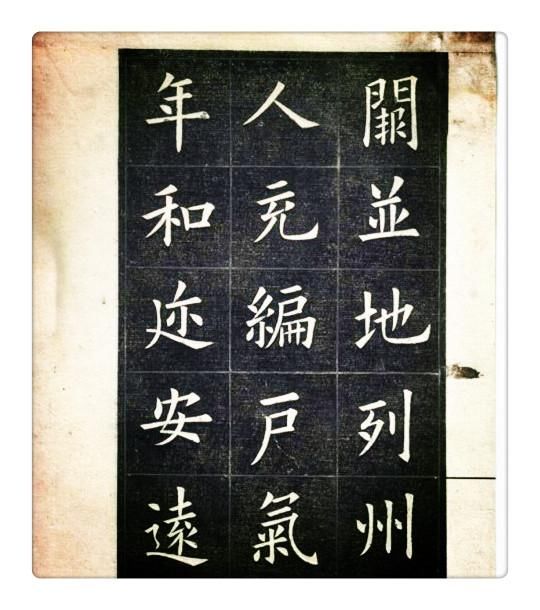 闕並地列州
人充編戶氣
年和迩安遠